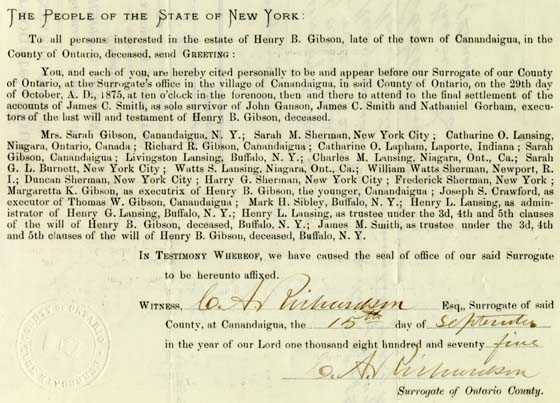 THE PEOPLE OF THE STATE OF NEW YORK:
To all persons interested in the estate of Henry B. Gibson, late of the town of Canandaigua, in
the County of Ontario, deceased, send GREETING:
You, and each of you, are hereby cited personally to be and appear before our Surrogate of our County
of Ontario, at the Surrogate's office in the village of Canandaigua, in said County of Ontario, on the 29th day
of October, A. D., 1875, at ten o'clock in the forenoon, then and there to attend to the final settlement of the
accounts of James C. Smith, as sole survivor of John Ganson, James C. Smith and Nathaniel Gorham, execu-
tors of the last will and testament of Henry B. Gibson, deceased.
Mrs. Sarah Gibson, Canandaigua, N. Y.; Sarah M. Sherman, New York City; Catharine O. Lansing,
Niagara, Ontario, Canada; Richard R. Gibson, Canandaigua; Catharine O. Lapham, Laporte, Indiana; Sarah
Gibson, Canandaigua; Livingston Lansing, Buffalo, N. Y.; Charles M. Lansing, Niagara, Ont., Ca.; Sarah
G. L. Burnett, New York City; Watts S. Lansing, Niagara, Ont., Ca.; William Watts Sherman, Newport, R.
I.; Duncan Sherman, New York City; Harry G. Sherman, New York City; Frederick Sherman, New York City;
Margaretta K. Gibson, as executrix of Henry B. Gibson, the younger, Canandaigua; Joseph S. Crawford, as
executor of Thomas W. Gibson, Canandaigua; Mark H. Sibley, Buffalo, N. Y.; Henry L. Lansing, as admin-
istrator of Henry G. Lansing, Buffalo, N. Y.; Henry L. Lansing, as trustee under the 3d, 4th and 5th clauses
of the will of Henry B. Gibson, deceased, Buffalo, N. Y.; James M. Smith, as trustee under the 3d, 4th
and 5th clauses of the will of Henry B. Gibson, deceased, Buffalo, N. Y.
IN TESTIMONY WHEREOF, we have caused the seal of office of our said Surrogate
to be hereunto affixed.
WITNESS, C. A. Richardson Esq., Surrogate of said
County, at Canandaigua, the 15th day of September
in the year of our Lord one thousand eight hundred and seventy five
C. A. Richardson
Surrogate of Ontario County.